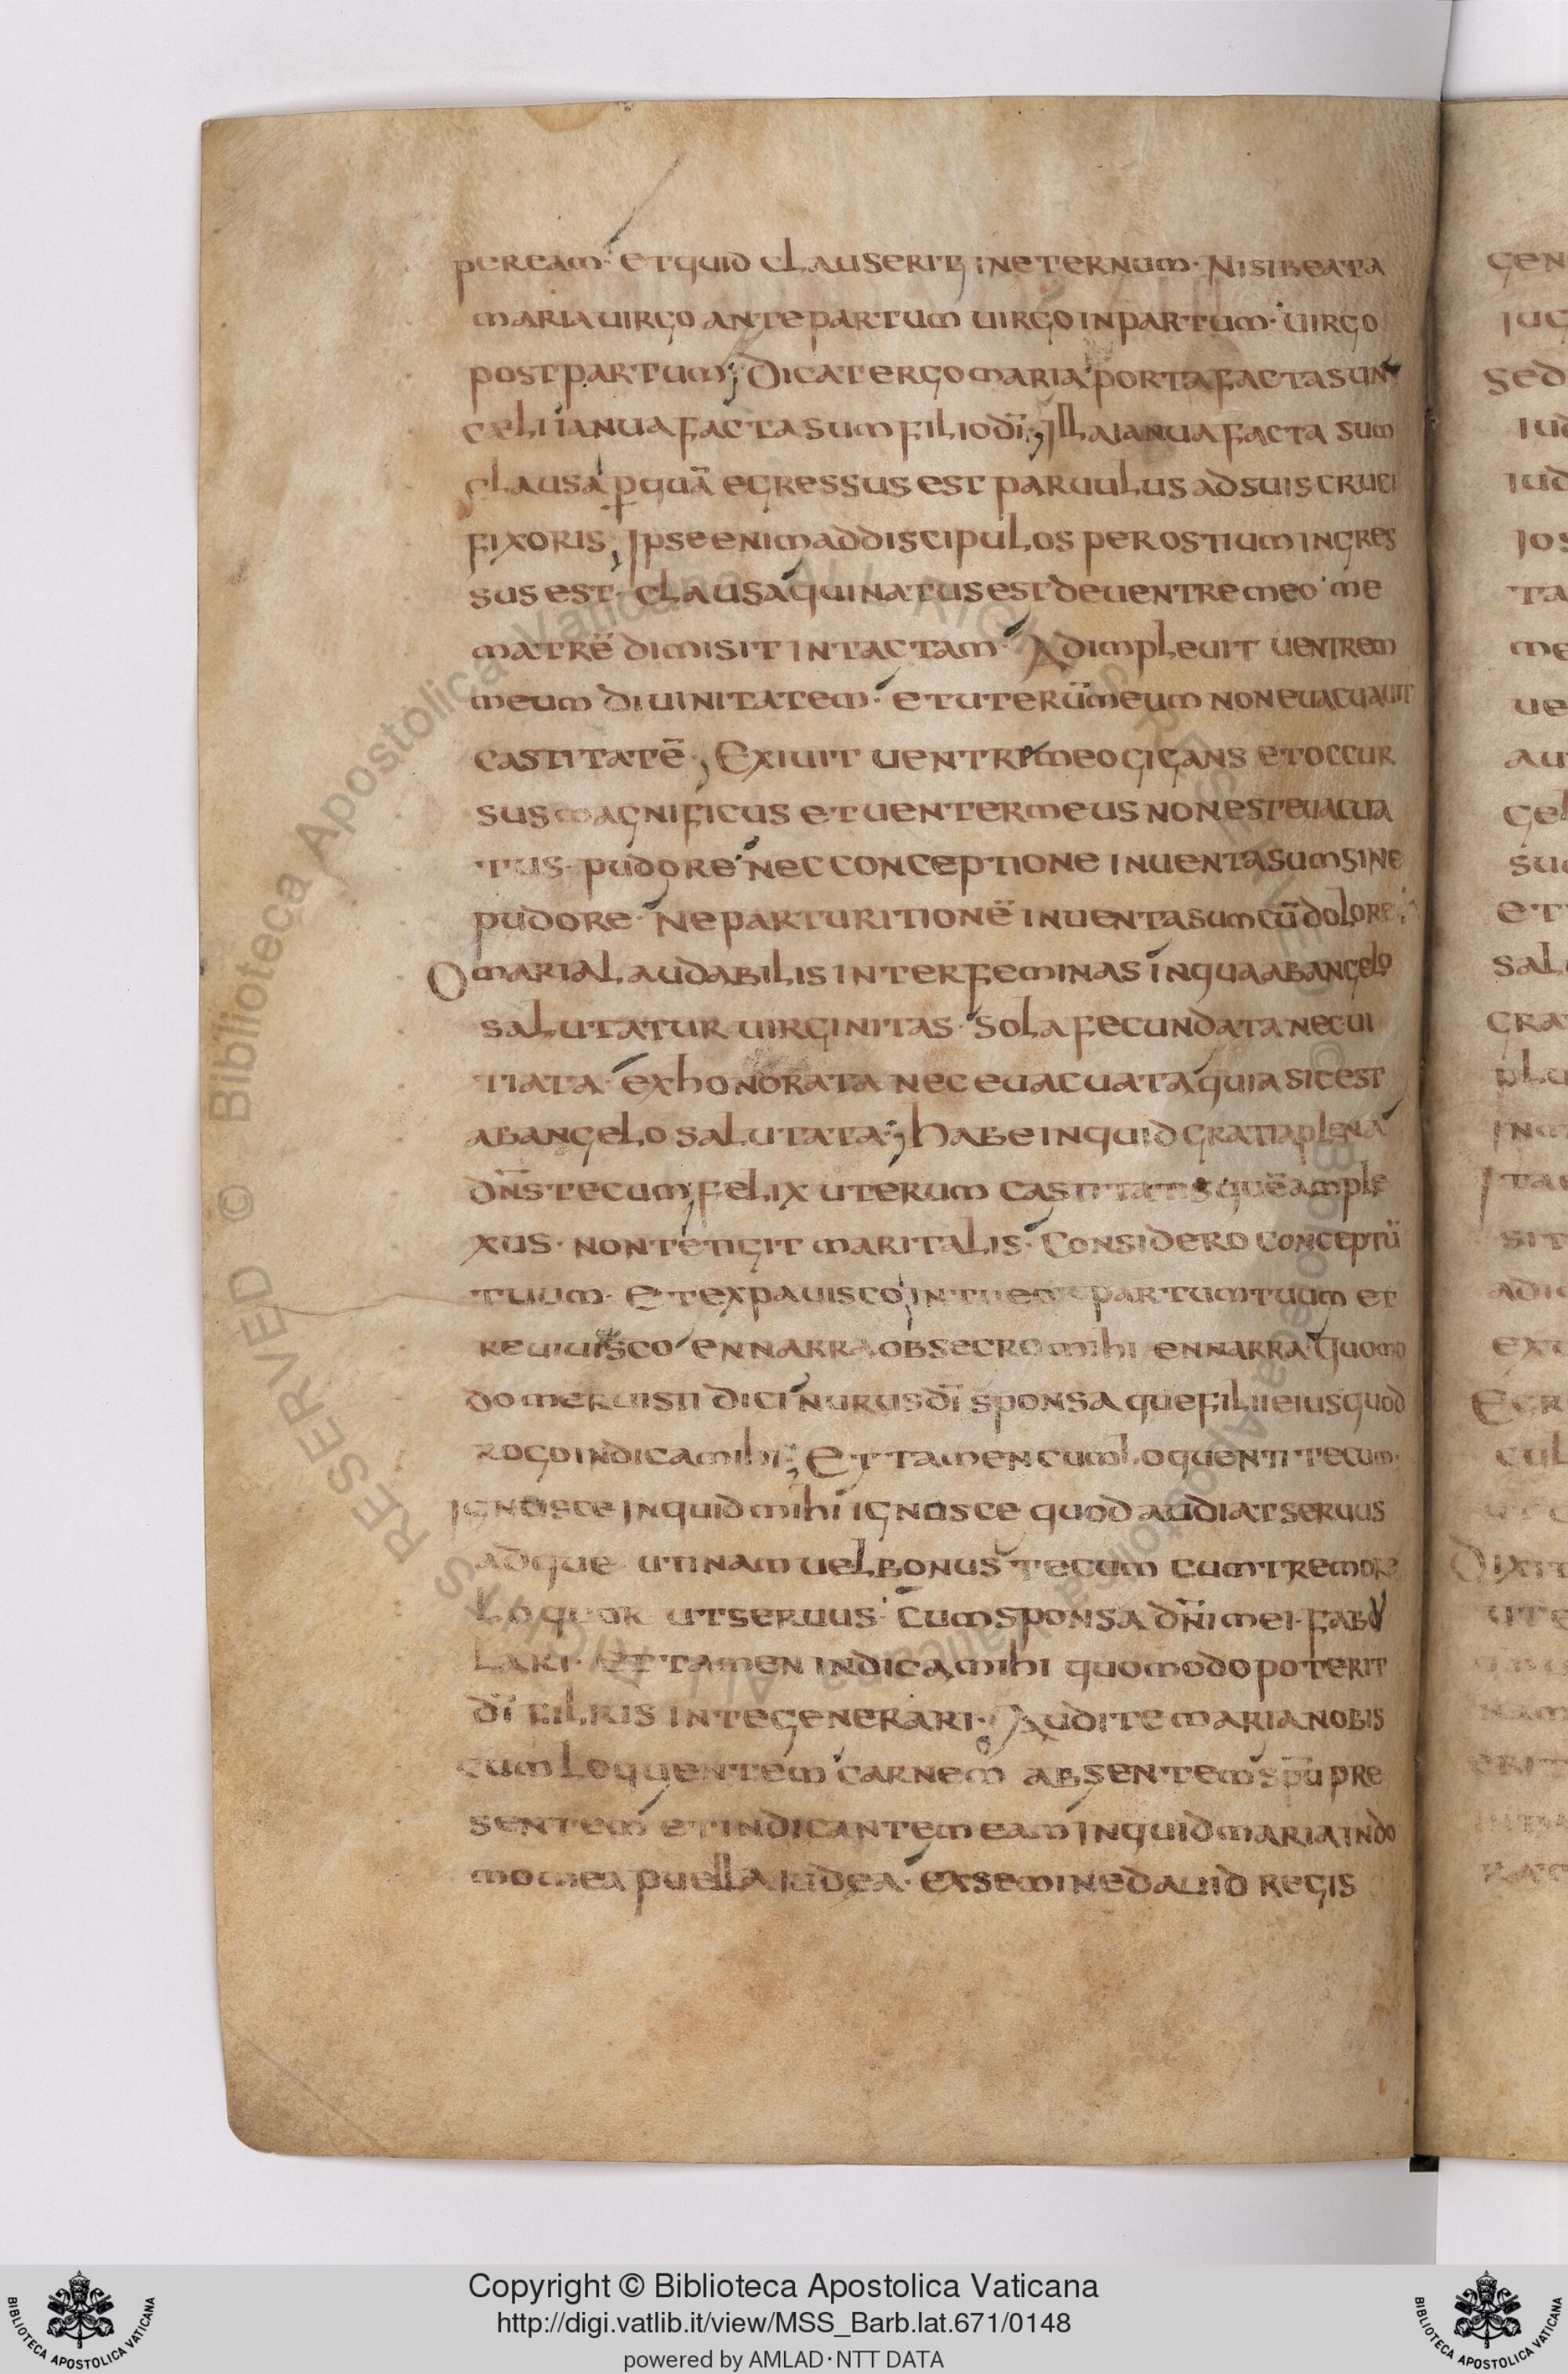 peream· et quid clauserit in eternum· Nisi beata
maria uirgo ante partum uirgo in partum· uirgo
post partum; Dicat ergo maria porta facta sum
celi ianua facta sum filio dī; Illa ianua facta sum
clausa p quā egressus est paruulus ad suis cruci
fixoris, Ipse enim ad discipulos per ostium ingres
sus est· clausa qui natus est de uentre meo· me
matrē dimisit intactam· Adimpleuit uentrem
meum diuinitatem· et uterūmeum non euacuauit
castitatē·, Exiuit uentri meo gigans et occur
sus magnificus et uenter meus non est euacua
tus· pudore· nec conceptione inuenta sum sine
pudore· Ne parturitionē inuenta sum cū dolore;
O maria laudabilis inter feminas in qua ab angelo
salutatur uirginitas· sola fecundata nec ui
tiata· exhonorata nec euacuata quia sic est
ab angelo salutata; habe inquid gratia plena
dn̄s tecum, felix uterum castitatis quē ample
xus· non tetigit maritalis· Considero conceptū
tuum· et expauisco, intueor partum tuum et
reuiuisco ennarra obsecro mihi ennarra· quomo
do meruisti dici nurus dī sponsa que filii eius quod
rogo indica mihi; Et tamen cum loquenti tecum·
ignosce inquid mihi ignosce quod audiat seruus
adque utinam uel bonus tecum cum tremore
loquor ut seruus· cum sponsa dn̄i mei· fabu
lari· et tamen indica mihi quomodo poterit
dī filius in te generari· Audite maria nobis
cum loquentem carnem absentem spū pre
sentem et indicantem eam inquid maria in do
mo mea puella iudea· ex semine dauid regis
Copyright © Biblioteca Apostolica Vaticana
http://digi.vatlib.it/view/MSS_Barb.lat.671/0148
powered by AMLAD·NTT DATA